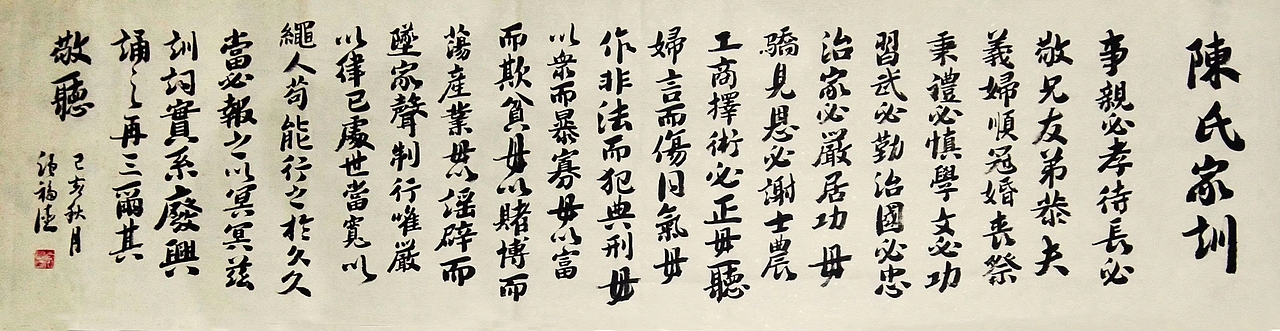 陳氏家訓
事親必孝待長必
敬兄友弟恭夫
義婦順冠婚喪祭
秉禮必慎學文必功
習武必勤治國必忠
治家必嚴居功毋
驕見恩必謝士農
工商擇術必正毋聽
婦言而傷同氣毋
作非法而犯典刑毋
以衆而暴寡毋以富
而欺貧毋以賭博而
蕩產業毋以謠辟而
墜家聲制行唯嚴
以律己處世當寬以
繩人苟能行之於久久
當必報之以冥冥茲
訓詞實系廢興
誦之再三爾其
敬聽
己亥秋月
福德